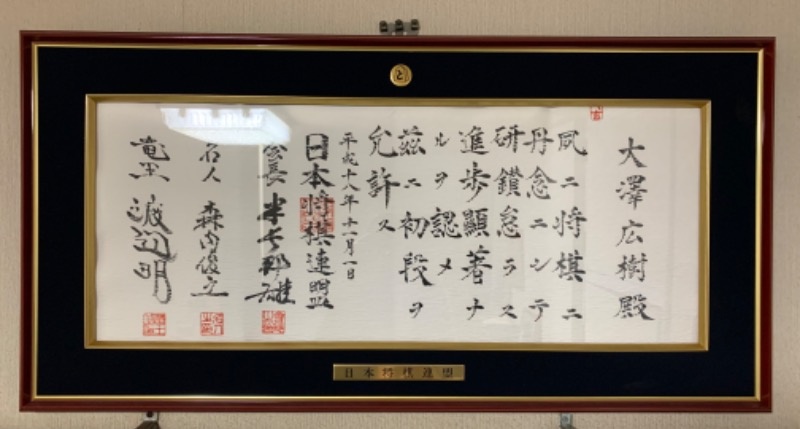 大澤広樹殿
夙ニ将棋ニ
丹念ニシテ
研鑽怠ラス
進歩顯著ナ
ルヲ認メ
茲ニ初段ヲ
允許ス
平成十八年十一月一日
日本将棋連盟
会長 米長邦雄
名人 森内俊之
竜王 渡辺明
日本将棋連盟
と